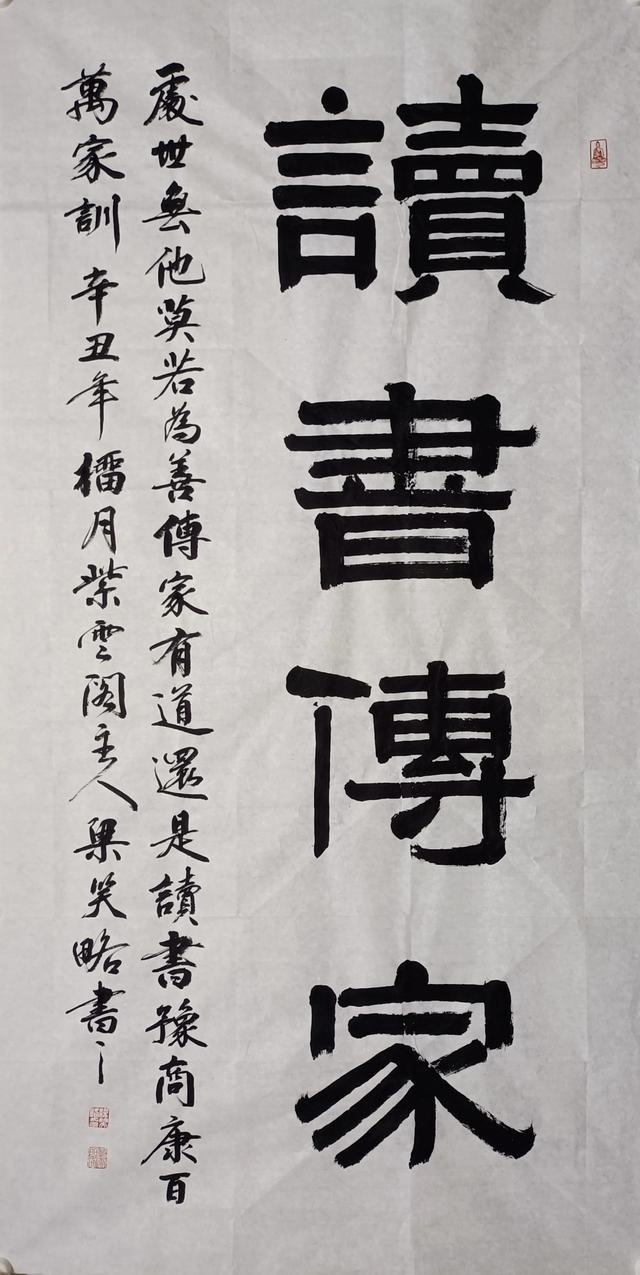 讀書傳家
處世無他莫若為善傳家有道還是讀書豫商康百
萬家訓辛丑年榴月紫雲閣主人梁笑略書之